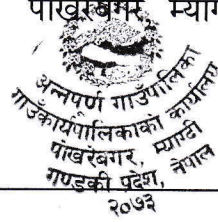 पोखरेबगर, म्याग
अन्नपूर्ण गाउँपालिका
गाउँकार्यपालिकाको कार्यालय
पोखरेबगर, म्याग्दी
गण्डकी प्रदेश, नेपाल
२०७३